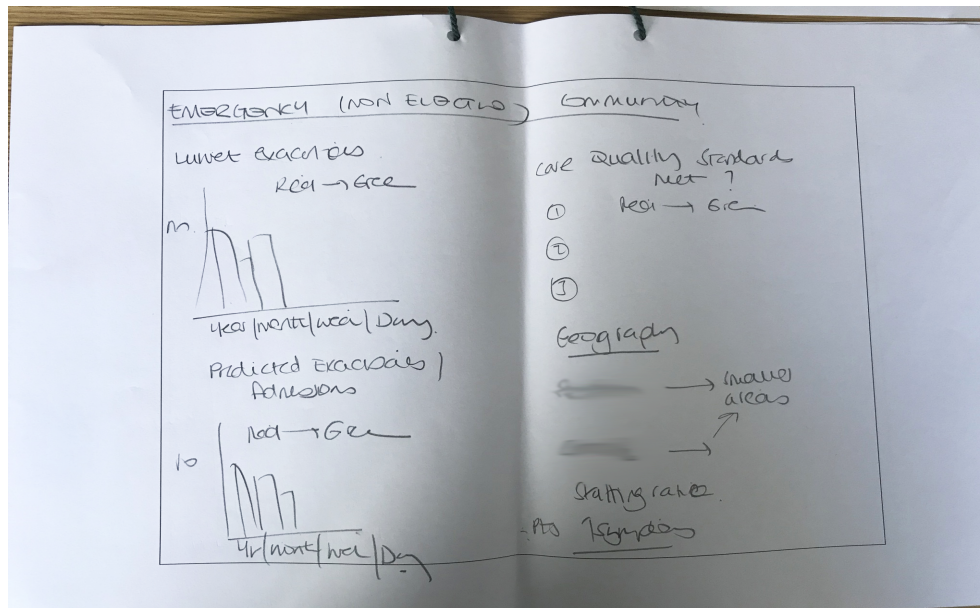 EMERGENCY (NON ELECTIVE)
Current exacerbations
Red → Green
n.
Year/month/week/Day
Predicted Exacerbations /
Admissions
Red → Green
10
Yr/month/week/Day
Community
Care Quality Standards
met ?
Red → Green
①
②
③
Geography
→ smaller
areas
→
Staffing ratio
Pts ↑symptoms